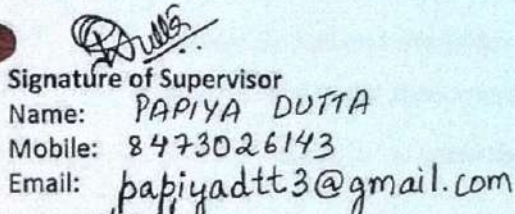 PDutta
Signature of Supervisor
Name: PAPIYA DUTTA
Mobile: 8473026143
Email: papiyadtt3@gmail.com